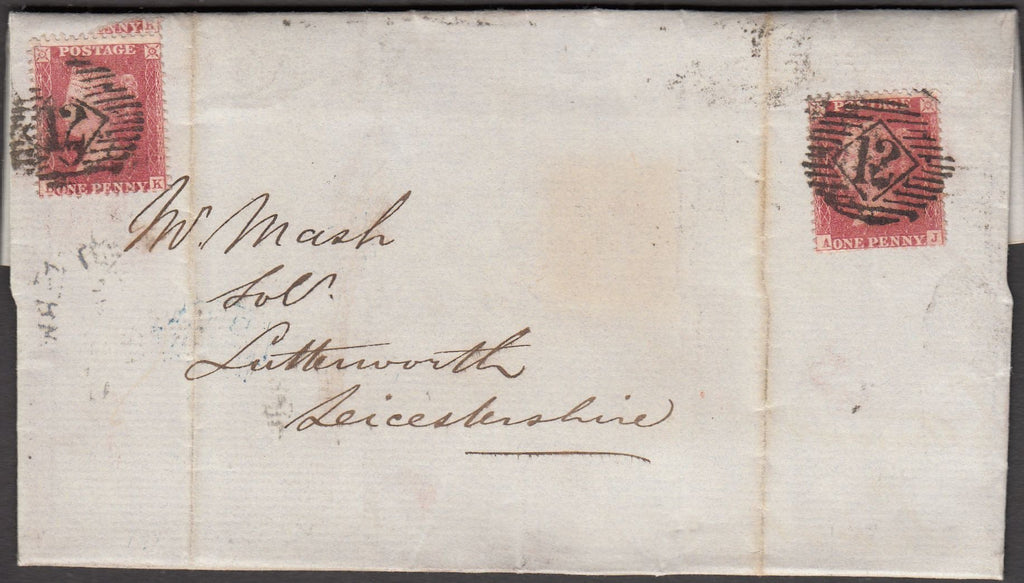 ENNY K
POSTAGE
12
ONE PENNY K
12
A ONE PENNY J
Mr. Mash
Solr.
Lutterworth
Leicestershire